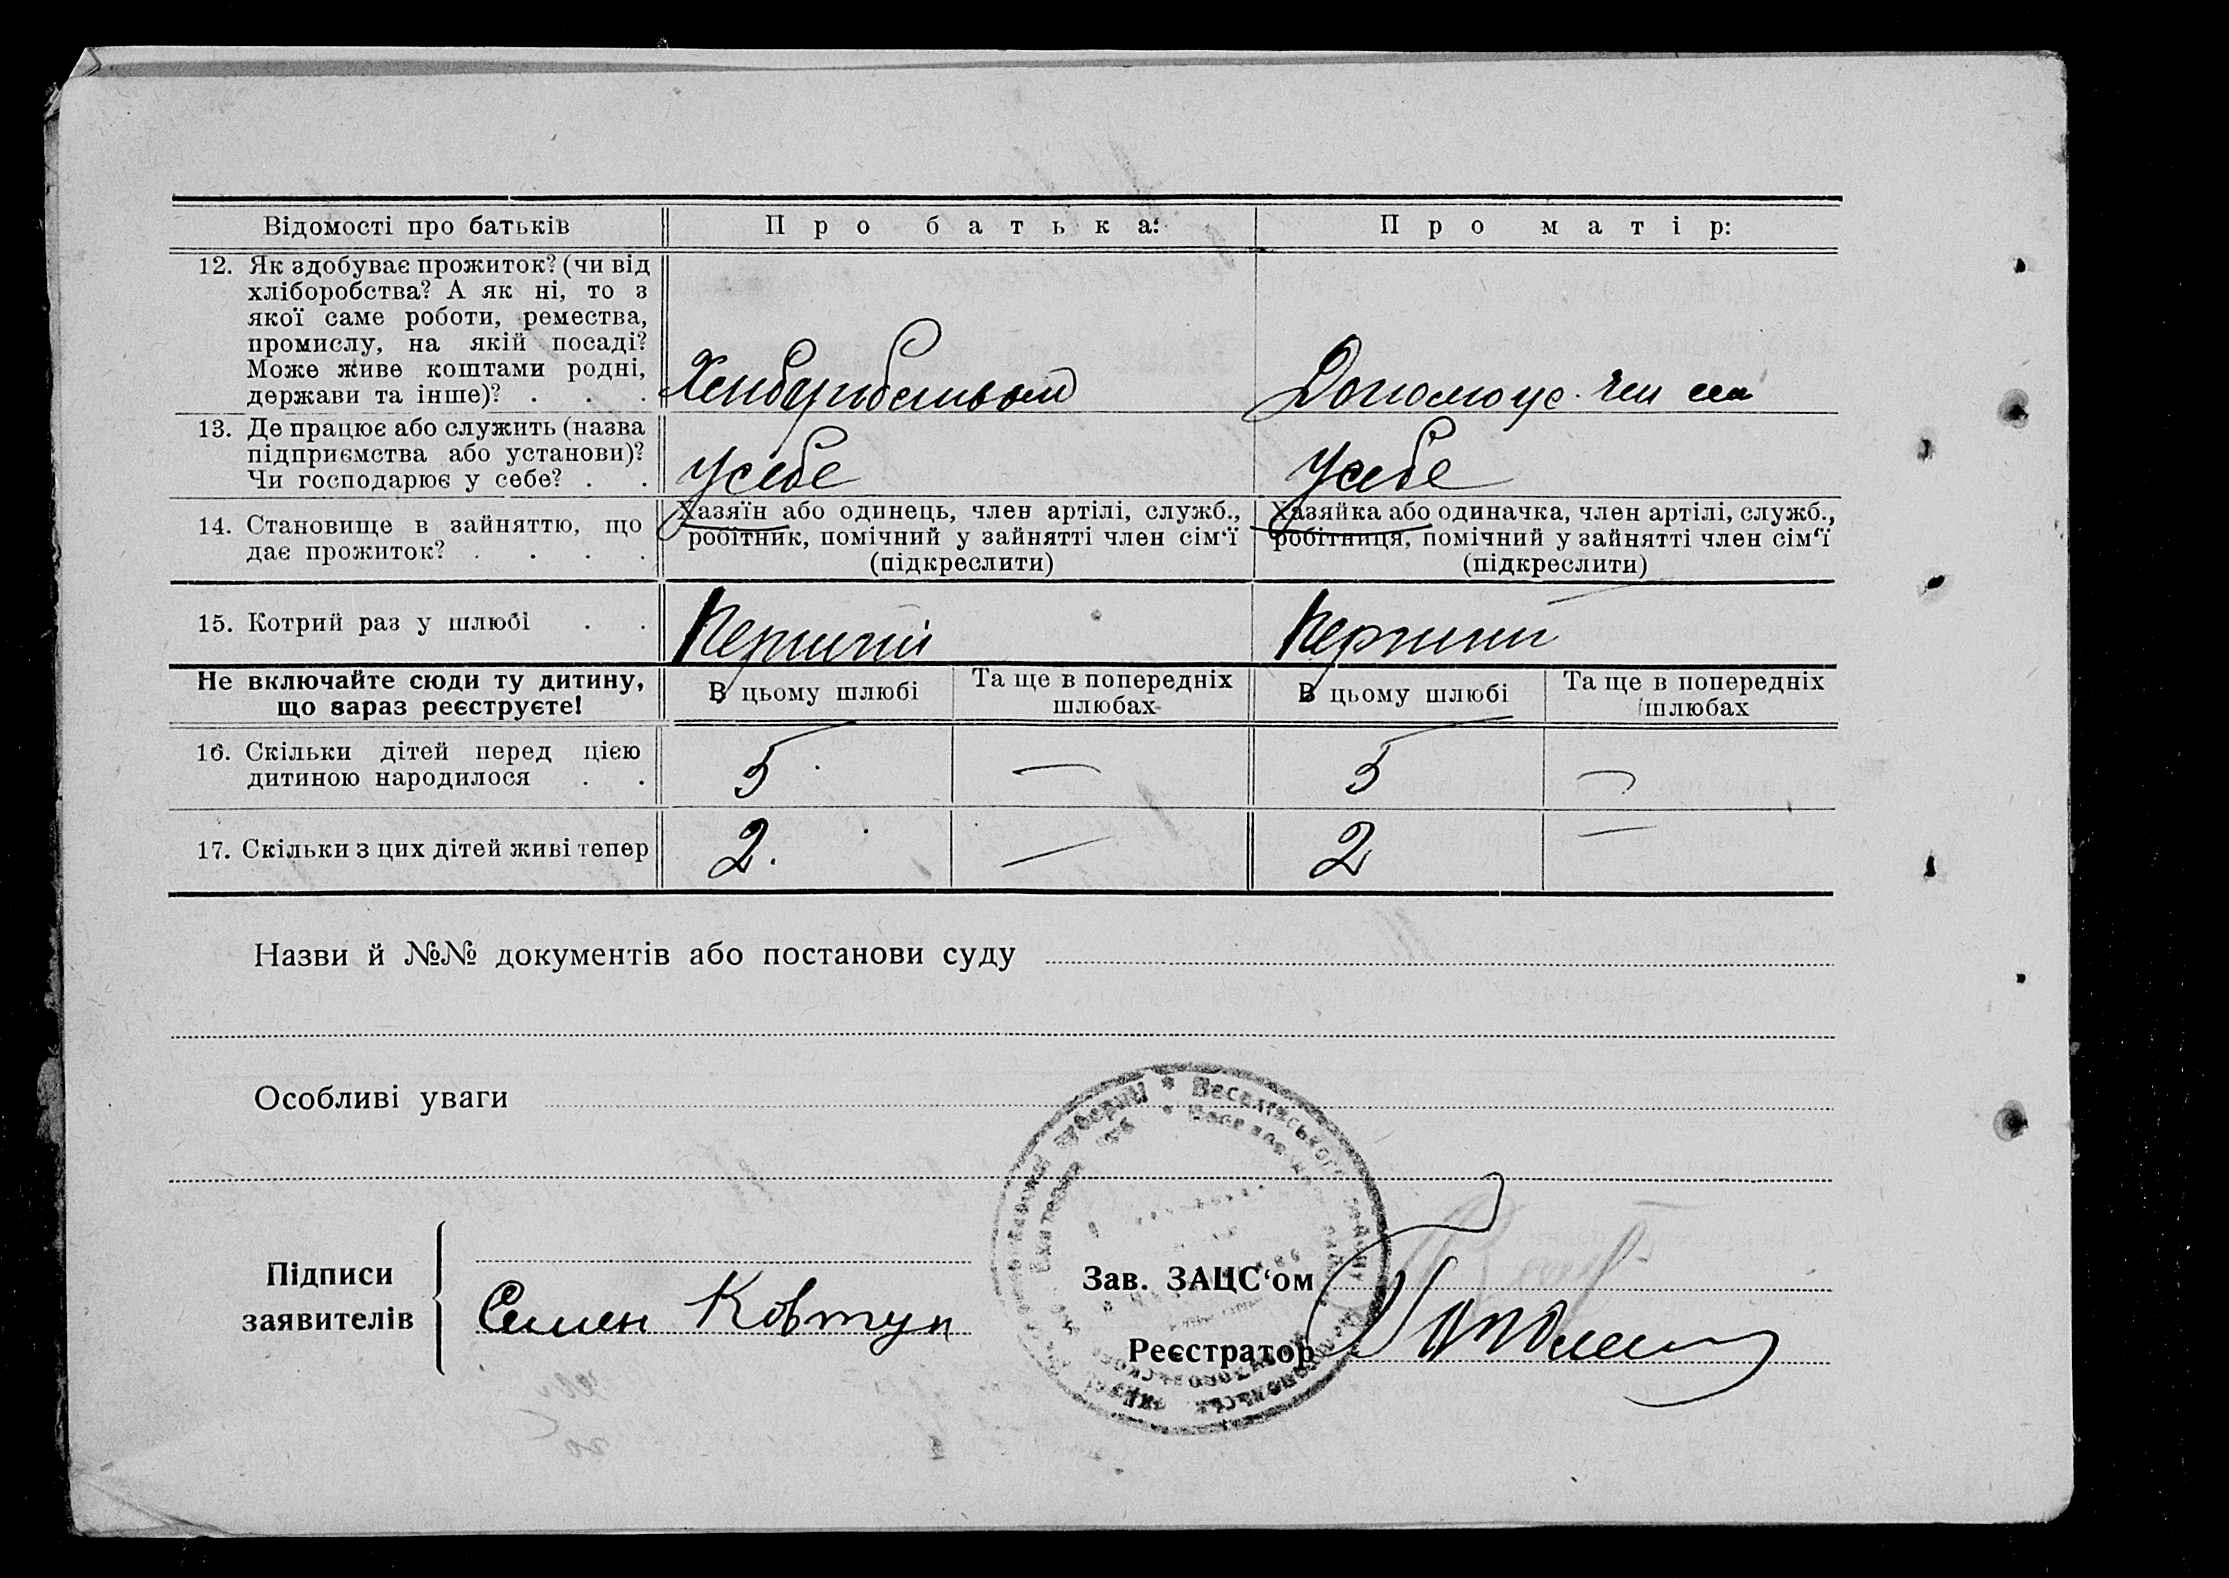 Відомості про батьків
Про батька:
Про матір:
12. Як здобуває прожиток? (чи від
хліборобства? А як ні, то з
якої саме роботи, ремества,
промислу, на якій посаді?
Може живе коштами родні,
держави та інше)? . . .
Допомогає чл
13. Де працює або служить (назва
підприємства або установи)?
Чи господарює у себе? . .
У себе
У себе
14. Становище в зайняттю, що
дає прожиток? . . . .
Хазяїн або одинець, член артілі, служб.,
робітник, помічний у зайнятті член сім‘ї
(підкреслити)
Хазяйка або одиначка, член артілі, служб.,
робітниця, помічний у зайнятті член сім‘ї
(підкреслити)
15. Котрий раз у шлюбі . .
Перший
Перший
Не включайте сюди ту дитину,
що зараз реєструєте!
В цьому шлюбі
Та ще в попередніх
шлюбах
В цьому шлюбі
Та ще в попередніх
шлюбах
16. Скільки дітей перед цією
дитиною народилося . .
5 — 5 —
17. Скільки з цих дітей живі тепер
2. — 2 —
Назви й №№ документів або постанови суду
Особливі уваги
Підписи
заявителів
Семен Ковтун
Зав. ЗАЦС‘ом
Реєстратор